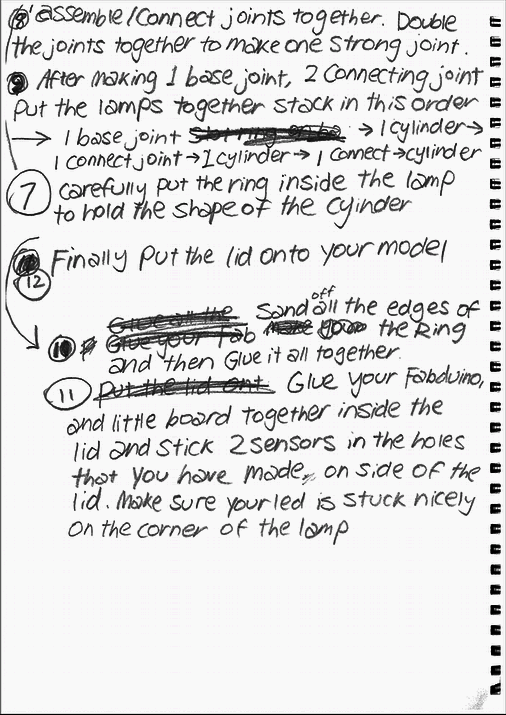 8 assemble/Connect joints together. Double
the joints together to make one strong joint.
9 After making 1 base joint, 2 connecting joint
Put the lamps together stack in this order
→ 1 base joint → 1 cylinder →
1 connect joint → 1 cylinder → 1 connect → cylinder
7 carefully put the ring inside the lamp
to hold the shape of the cyinder
12 Finally Put the lid onto your model
Glue all the Sand off all the edges of
10 Glue your Fab the Ring
and then Glue it all together.
11 Put the lid ont Glue your Fabduino,
and little board together inside the
lid and stick 2 sensors in the holes
that you have made, on side of the
lid. Make sure your led is stuck nicely
on the corner of the lamp